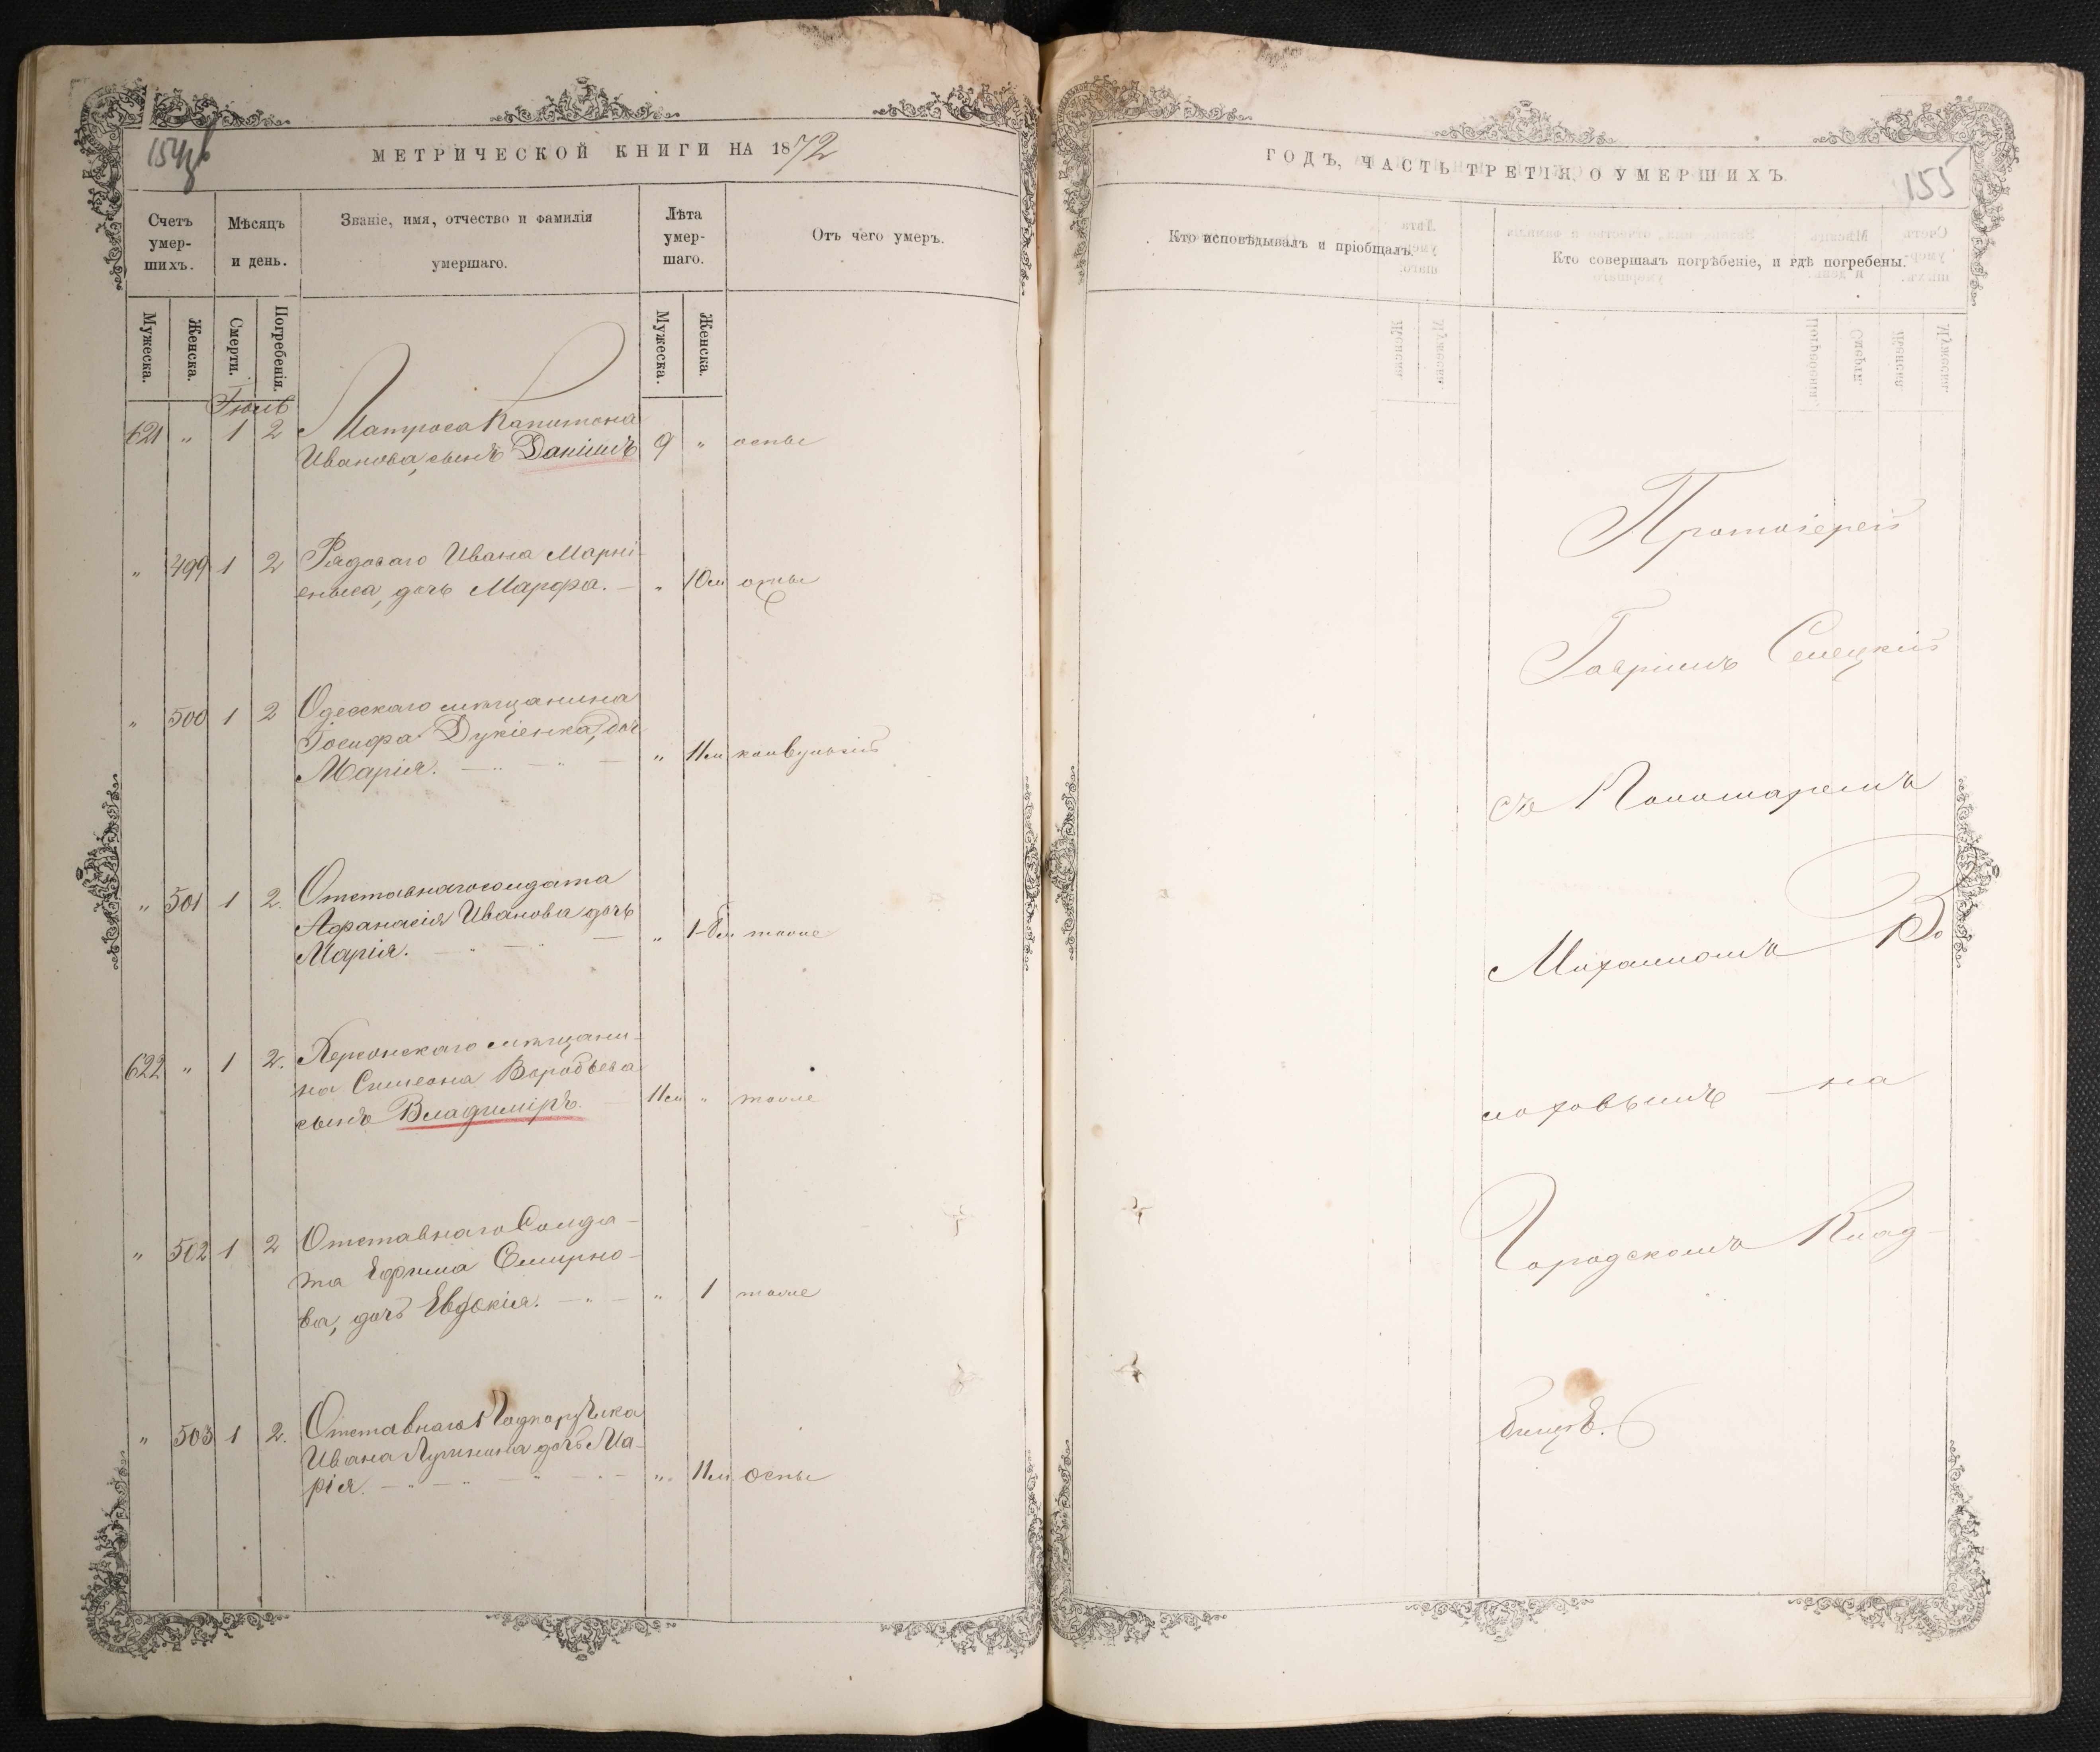 154об
МЕТРИЧЕСКОЙ КНИГИ НА 1872
Счетъ умер-шихъ.
Мѣсяцъ и день.
Званіе, имя, отчество и фамилія умершаго.
Лѣта умер-шаго.
Отъ чего умеръ.
Мужеска.
Женска.
Смерти.
Погребенія.
Мужеска.
Женска.
Іюль
621 " 1 2 Матроса Капитона
Иванова, сынъ Даніилъ 9 " оспы
" 499 1 2 Рядоваго Ивана
дочь Марфа. — " 10м оспы
" 500 1 2 Одесскаго мѣщанина
Іосифа Дукіенка, дочь
Марія. " 11м конвульсій
" 501 1 2. Отставнаго солдата
Афанасія Иванова дочь
Марія. " тоже
622 " 1 2. Херсонскаго мѣщани-
на Симеона Воробьева
сынъ Владиміръ. 11м " тоже
" 502 1 2 Отставнаго Солда-
та Ефима Смирно-
ва, дочь Евдокія. " 1 тоже
" 503 1 2. Отставнаго Подпоручика
Ивана дочь Ма-
рія. " 11м оспы
155
ГОДЪ, ЧАСТЬ ТРЕТІЯ, О УМЕРШИХЪ.
Кто исповѣдывалъ и пріобщалъ.
Кто совершалъ погрѣбеніе, и гдѣ погребены.
Протоіерей
Гавріилъ Селецкій
съ Пономаремъ
Михаиломъ Во
лоховымъ — на
Городскомъ Клад-
бищѣ.